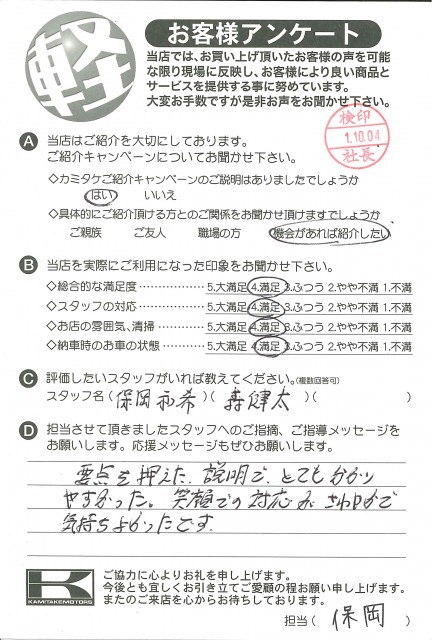 軽
お客様アンケート
当店では、お買い上げ頂いたお客様の声を可能
な限り現場に反映し、お客様により良い商品と
サービスを提供する事に努めています。
大変お手数ですが是非お声をお聞かせ下さい。
検印
1.10.04
社長
A 当店はご紹介を大切にしております。
ご紹介キャンペーンについてお聞かせ下さい。
◇カミタケご紹介キャンペーンのご説明はありましたでしょうか
はい いいえ
◇具体的にご紹介頂ける方とのご関係をお聞かせ頂けますでしょうか
ご親族 ご友人 職場の方 機会があれば紹介したい
B 当店を実際にご利用になった印象をお聞かせ下さい。
◇総合的な満足度………… 5.大満足 4.満足 3.ふつう 2.やや不満 1.不満
◇スタッフの対応………… 5.大満足 4.満足 3.ふつう 2.やや不満 1.不満
◇お店の雰囲気、清掃…… 5.大満足 4.満足 3.ふつう 2.やや不満 1.不満
◇納車時のお車の状態…… 5.大満足 4.満足 3.ふつう 2.やや不満 1.不満
C 評価したいスタッフがいれば教えてください。(複数回答可)
スタッフ名( 保岡 希 )( 健太 )( )
D 担当させて頂きましたスタッフへのご指摘、ご指導メッセージを
お願いします。応援メッセージもぜひお願いします。
要点を押えた説明で、とても分かり
やすかった。笑顔での対応がさわやかで
気持ちよかったです。
K
KAMITAKEMOTORS
ご協力に心よりお礼を申し上げます。
今後とも宜しくお引き立てご愛顧の程お願い申し上げます。
またのご来店を心からお待ちしております。
担当( 保岡 )